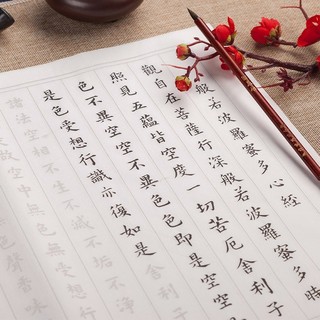 般若波羅蜜多心經
觀自在菩薩行深般若波羅蜜多時
照見五蘊皆空度一切苦厄舍利子
色不異空空不異色色即是空空
是色受想行識亦復如是舍利
諸法空相不生不滅不垢不淨
空中無色無受想